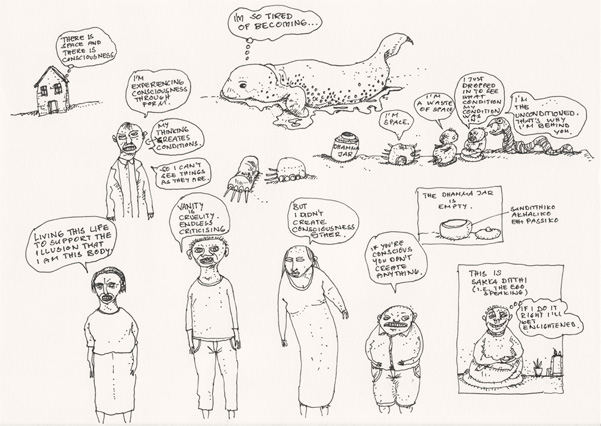 THERE IS
SPACE AND
THERE IS
CONSCIOUSNESS
I'M
EXPERIENCING
CONSCIOUSNESS
THROUGH
FORM.
MY
THINKING
CREATES
CONDITIONS.
SO I CAN'T
SEE THINGS
AS THEY ARE.
I'M SO TIRED
OF BECOMING...
DHAMMA
JAR
I'M
SPACE.
I'M
A WASTE
OF SPACE.
I JUST
DROPPED
IN TO SEE
WHAT
CONDITION
MY
CONDITION
WAS
IN
I'M
THE
UNCONDITIONED.
THAT'S WHY
I'M BEHIND
YOU.
LIVING THIS LIFE
TO SUPPORT THE
ILLUSION THAT
I AM THIS BODY
VANITY
IS
CRUELTY.
ENDLESS
CRITICISING
BUT
I DIDN'T
CREATE
CONSCIOUSNESS
EITHER.
IF YOU'RE
CONSCIOUS
YOU DON'T
CREATE
ANYTHING.
THE DHAMMA JAR
IS
EMPTY.
SANDITTHIKO
AKHALIKO
EHI PASSIKO
THIS IS
SAKKA DITTHI
(I.E. THE EGO
SPEAKING)
IF I DO IT
RIGHT I'LL
GET
ENLIGHTENED.